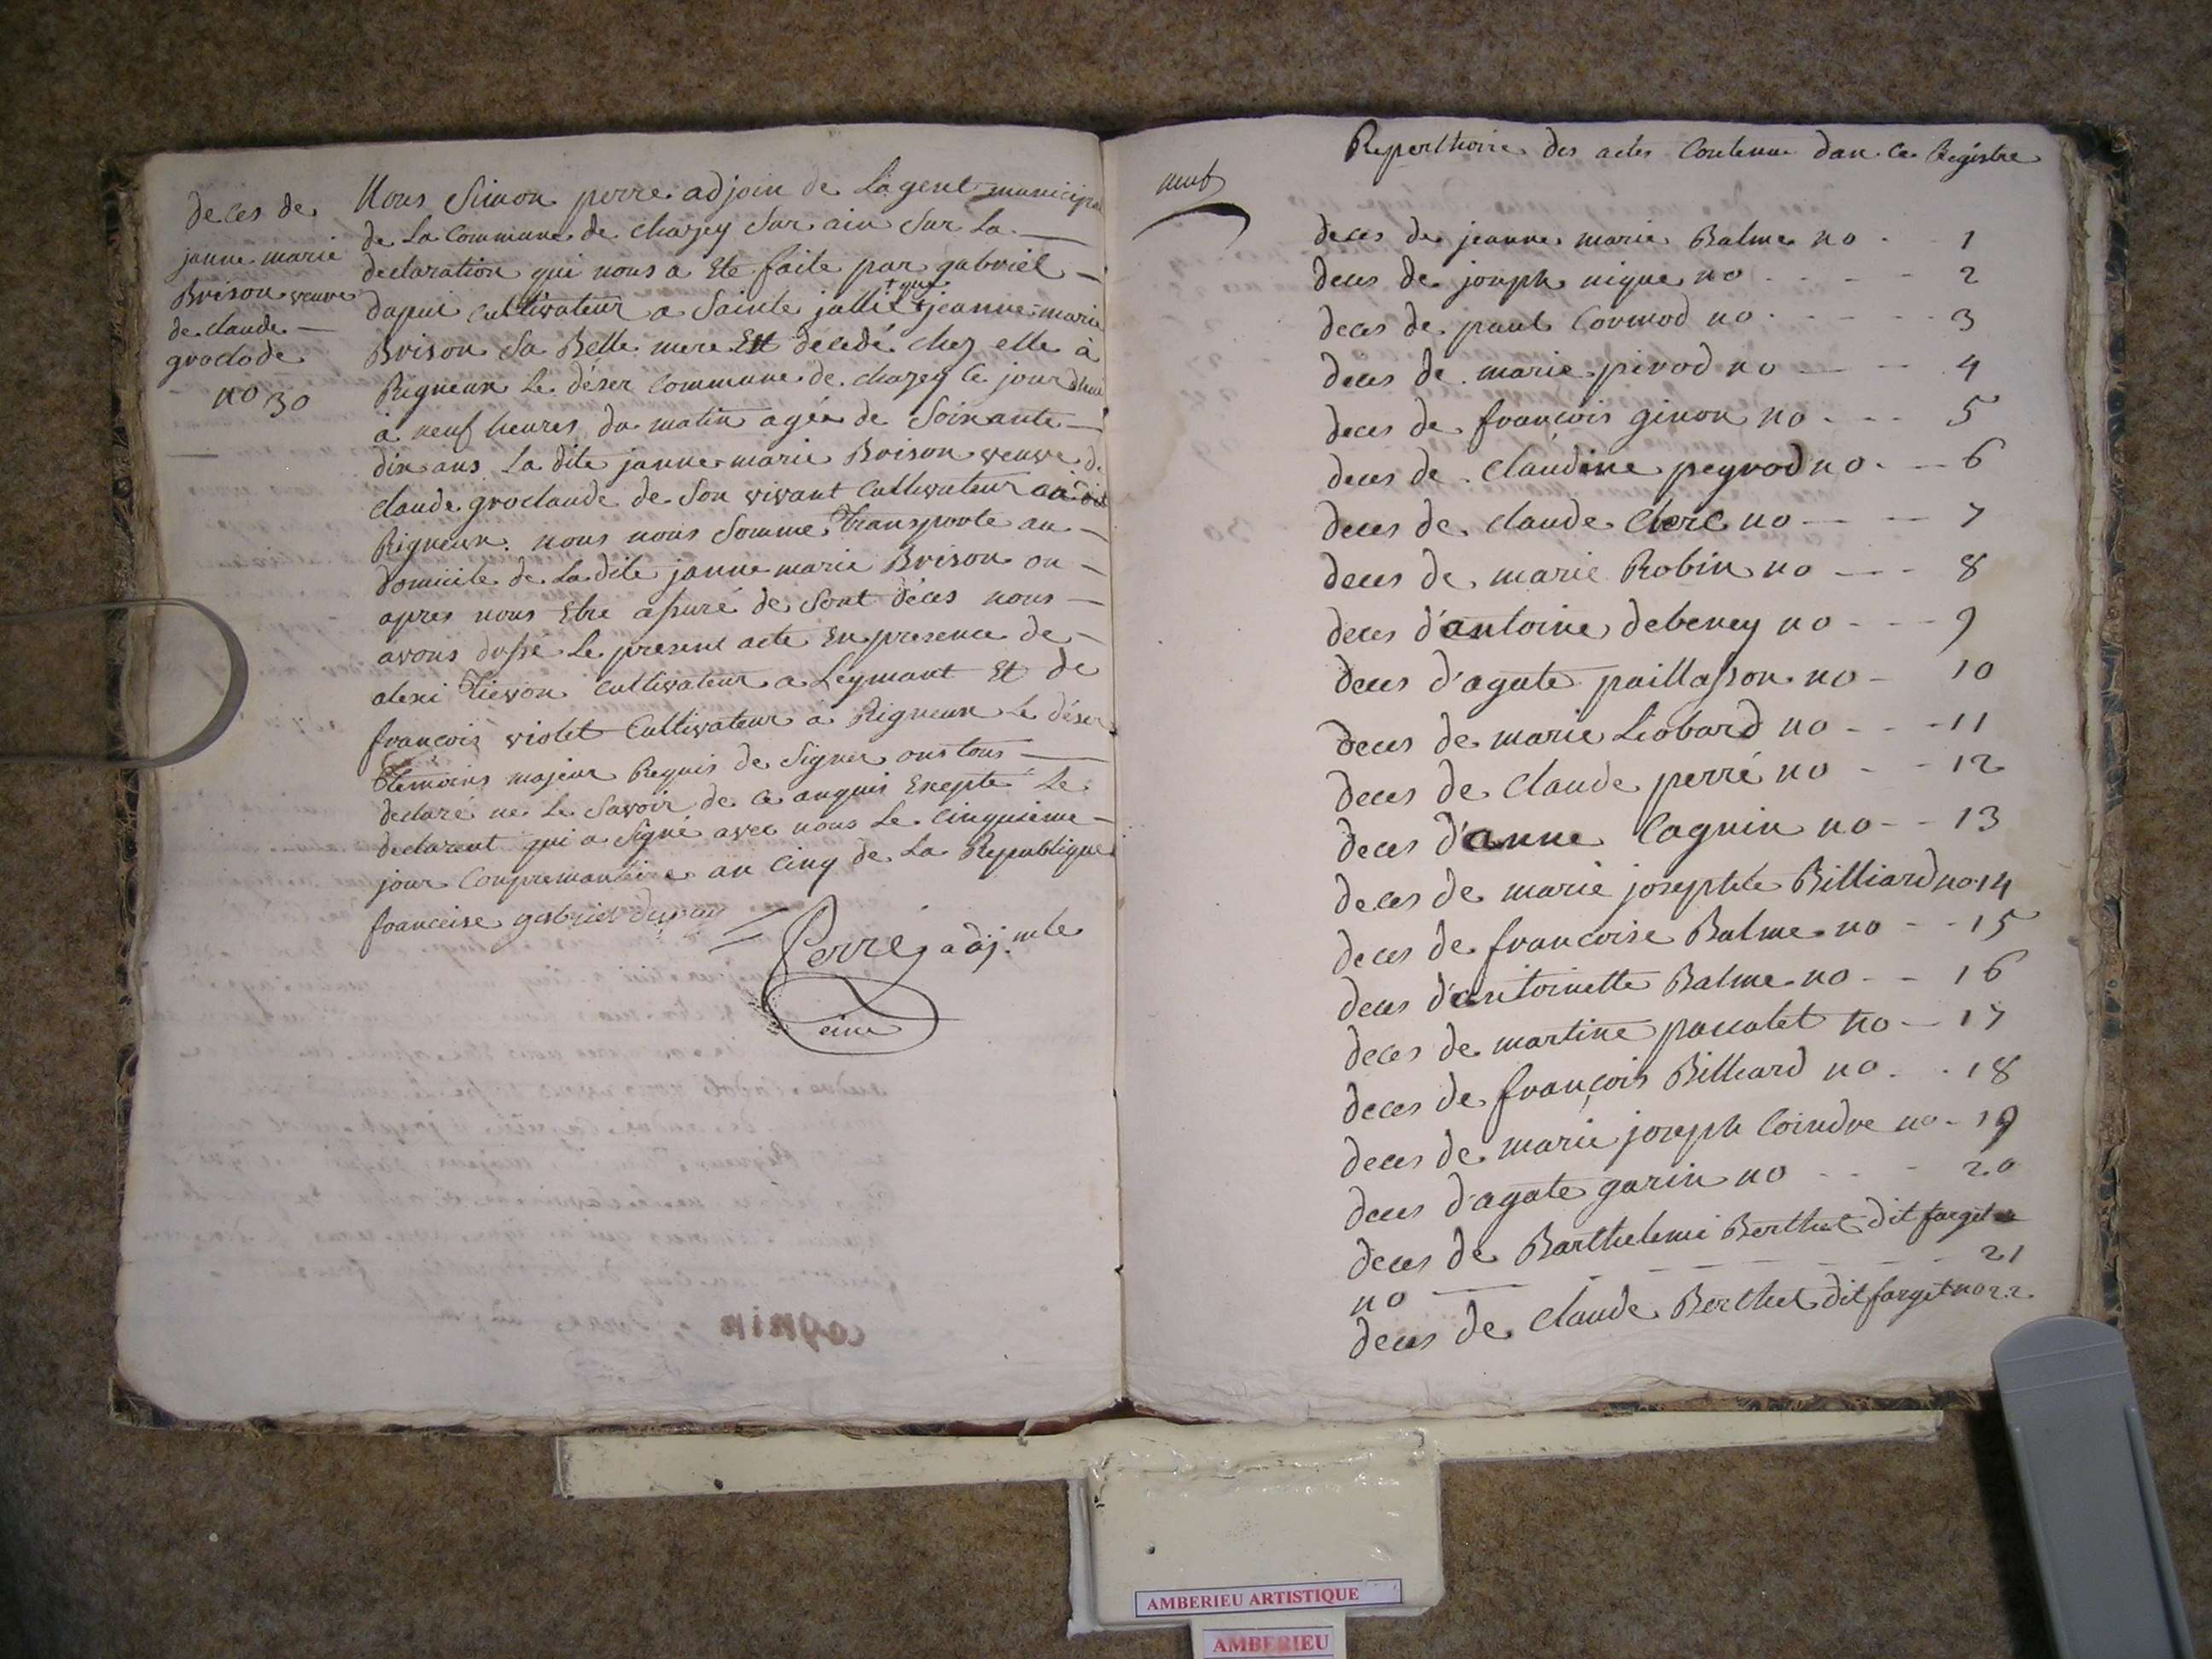 deces de
janne marie
Brison veuve
de claude
groclode
no 30
Nous Simon perre adjoin de Lagent municipal
de La Commune de chazey Sur ain Sur La
declaration qui nous a Ete faite par gabriel
dupui Cultivateur a Sainte jullie + jeanne marie
+ que
Brison Sa Belle mere Est decedé chez elle à
Rigneux Le déser Commune de chazey Ce jour dhui
à neuf heures du matin agée de Soixante
dix ans La dite janne marie Brison veuve de
claude groclaude de Son vivant Cultivateur au dit
Rigneux. nous nous Somme Transporte au
domicile de La dite janne marie Brison ou
apres nous Etre assuré de Sont déces nous
avons dressé Le present acte En presence de
alexi Cultivateur a Leymant Et de
françois violet Cultivateur à Rigneux Le déser
Temoins majeur Requis de Signer ons tous
declaré ne Le Savoir de Ce anquis Exepte Le
declarent qui a Signé avec nous Le Cinquieme
jour Conpremantaire an Cinq de La Republique
francaise gabriel dupui
Perré adj. mle
cognin
neuf
Reperthoire des actes Contenue dan Ce Registre
deces de jeanne marie Balme no 1
deces de joseph nique no 2
deces de paul Cormod no 3
deces de marie pirod no 4
deces de françois ginon no 5
deces de Claudine peyrod no 6
deces de claude Clerc no 7
deces de marie Robin no 8
deces d'antoine debeney no 9
deces d'agate paillasson no 10
deces de marie Liobard no 11
deces de Claude perré no 12
deces d'anne Cagnin no 13
deces de marie josephte Billiard no 14
deces de francoise Balme no 15
deces d'antoinette Balme no 16
deces de martine paccalet no 17
deces de françois Billiard no 18
deces de marie joseph Coindre no 19
deces d'agate garin no 20
deces de Barthelemi Berthet dit farget
no 21
deces de Claude Berthet dit farget no 22
AMBERIEU ARTISTIQUE
AMBERIEU